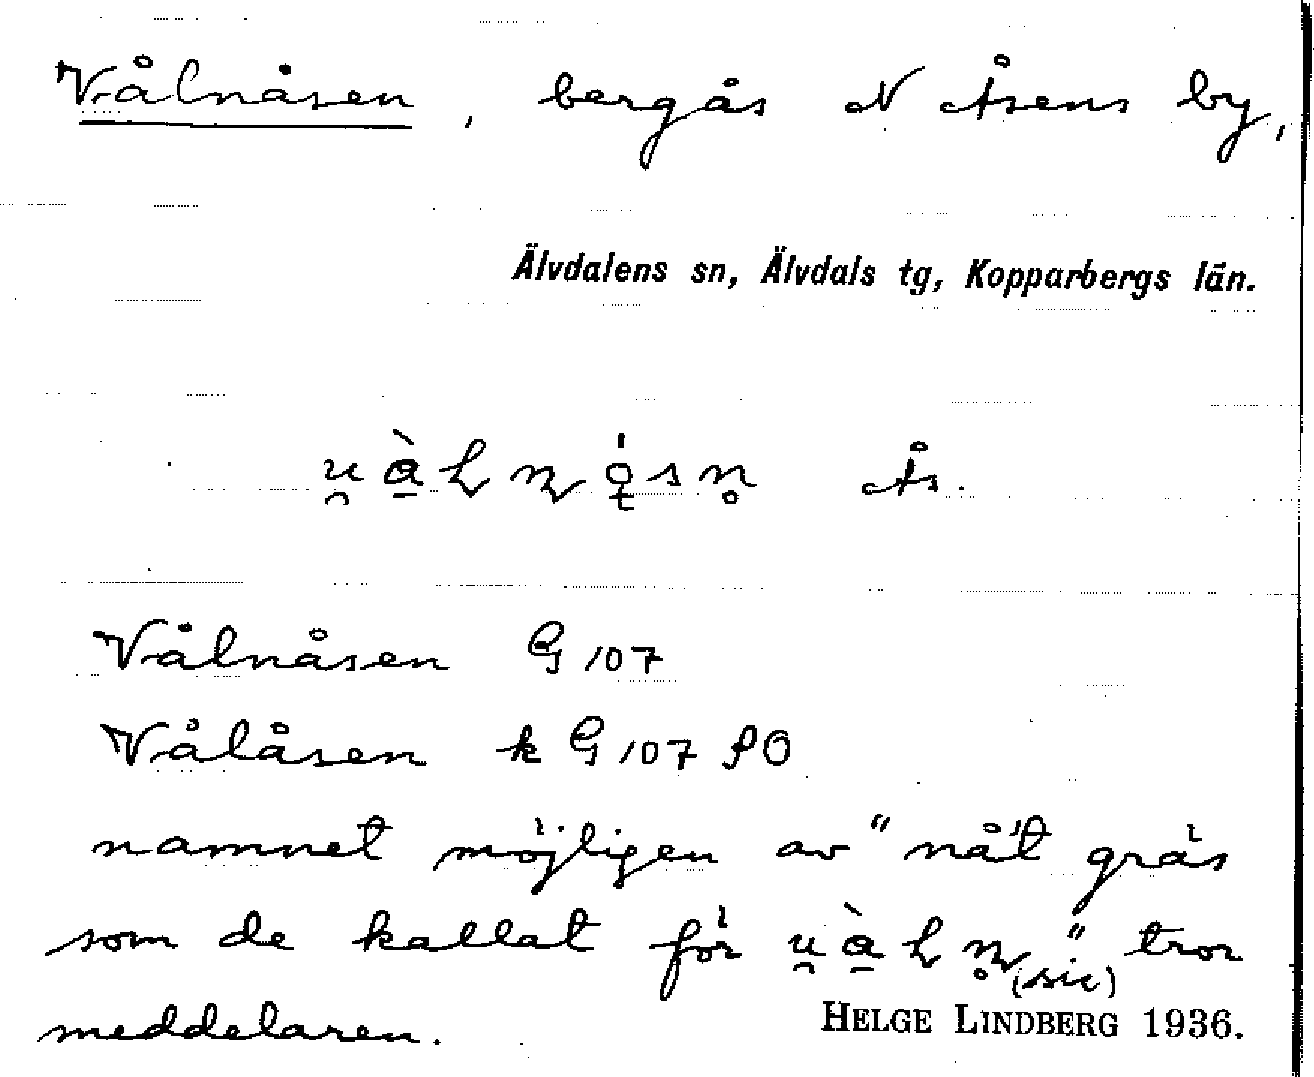 Vålnåsen, bergås N Åsens by,
Älvdalens sn, Älvdals tg, Kopparbergs län.
Ås.
Vålnåsen G 107
Vålåsen k G 107 SO
namnet möjligen av "nåt gräs
som de kallat för " (sic) tror
meddelaren.
HELGE LINDBERG 1936.